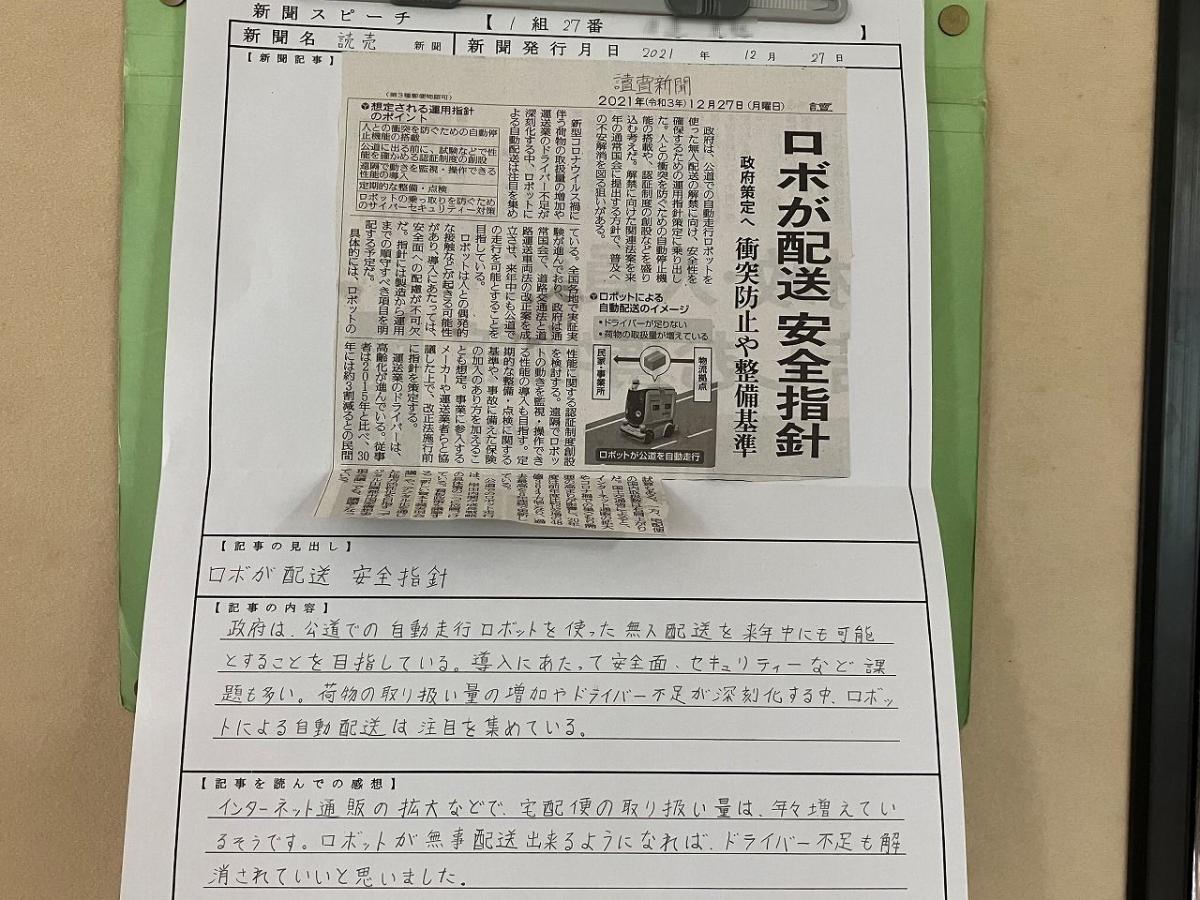 新聞スピーチ 【 1 組 27 番 】
新聞名 読売 新聞 新聞発行月日 2021 年 12 月 27 日
【新聞記事】
讀賣新聞
(第3種郵便物認可)
2021年(令和3年)12月27日(月曜日)
ロボが配送 安全指針
政府策定へ 衝突防止や整備基準
政府は、公道での自動走行ロボットを
使った無人配送の解禁に向け、安全性を
確保するための運用指針策定に乗り出し
た。人との衝突を防ぐための自動停止機
能の搭載や、認証制度の創設などを盛り
込む考えだ。解禁に向けた関連法案を来
年の通常国会に提出する方針で、普及へ
の不安解消を図る狙いがある。
新型コロナウイルス禍に
伴う荷物の取扱量の増加や
運送業のドライバー不足が
深刻化する中、ロボットに
よる自動配送は注目を集め
想定される運用指針
のポイント
人との衝突を防ぐための自動停
止機能の搭載
公道に出る前に、試験などで性
能を確かめる認証制度の創設
遠隔で動きを監視・操作できる
性能の導入
定期的な整備・点検
ロボットの乗っ取りを防ぐため
のサイバーセキュリティー対策
ている。全国各地で実証実
験が進んでおり、政府は通
常国会で、道路交通法と道
路運送車両法の改正案を成
立させ、来年中にも公道で
の走行を可能とすることを
目指している。
ロボットは人との偶発的
な接触などが起きる可能性
があり、導入にあたっては、
安全面への配慮が不可欠
だ。指針には製造から運用
までの順守すべき項目を明
記する予定だ。
具体的には、ロボットの
ロボットによる
自動配送のイメージ
・ドライバーが足りない
・荷物の取扱量が増えている
民家・事業所
物流拠点
ロボットが公道を自動走行
性能に関する認証制度創設
を検討する。遠隔でロボッ
トの動きを監視・操作でき
る性能の導入も目指す。定
期的な整備・点検に関する
基準や、事故に備えた保険
の加入のあり方を加えるこ
とも想定。事業に参入する
メーカーや運送業者らと協
議した上で、改正法施行前
に指針を策定する。
運送業のドライバーは、
高齢化が進んでいる。従事
者は2015年と比べ、30
年には約3割減るとの民間
【記事の見出し】
ロボが配送 安全指針
【記事の内容】
政府は、公道での自動走行ロボットを使った無人配送を来年中にも可能
とすることを目指している。導入にあたって安全面、セキュリティーなど課
題も多い。荷物の取り扱い量の増加やドライバー不足が深刻化する中、ロボッ
トによる自動配送は注目を集めている。
【記事を読んでの感想】
インターネット通販の拡大などで、宅配便の取り扱い量は、年々増えてい
るそうです。ロボットが無事配送出来るようになれば、ドライバー不足も解
消されていいと思いました。